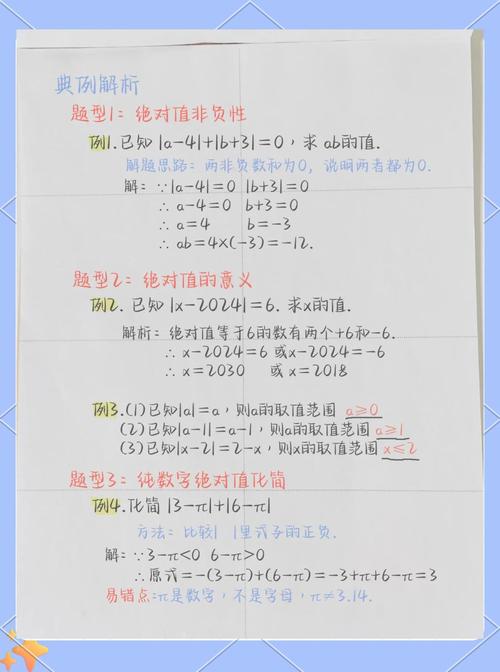 典例解析
题型1：绝对值非负性
例1.已知 |a-4|+|b+3|=0，求 ab的值.
解题思路：两非负数和为0，说明两者都为0.
解：∵|a-4|=0 |b+3|=0
∴ a-4=0 b+3=0
∴ a=4 b=-3
∴ ab=4×(-3)=-12.
题型2：绝对值的意义
例2. 已知 |x-2024|=6. 求x的值.
解析：绝对值等于6的数有两个+6和-6.
∴ x-2024=6 或x-2024=-6
∴ x=2030 或 x=2018
例3.(1)已知|a|=a，则a的取值范围 a≥0
(2)已知|a-1|=a-1，则a的取值范围 a≥1
(3)已知|x-2|=2-x，则x的取值范围 x≤2
题型3：纯数字绝对值化简
例4.化简 |3-π|+|6-π|
方法：比较| |里式子的正负.
解：∵3-π<0 6-π>0
∴原式=-(3-π)+(6-π)=-3+π+6-π=3
易错点：π是数字，不是字母，π≠3.14.